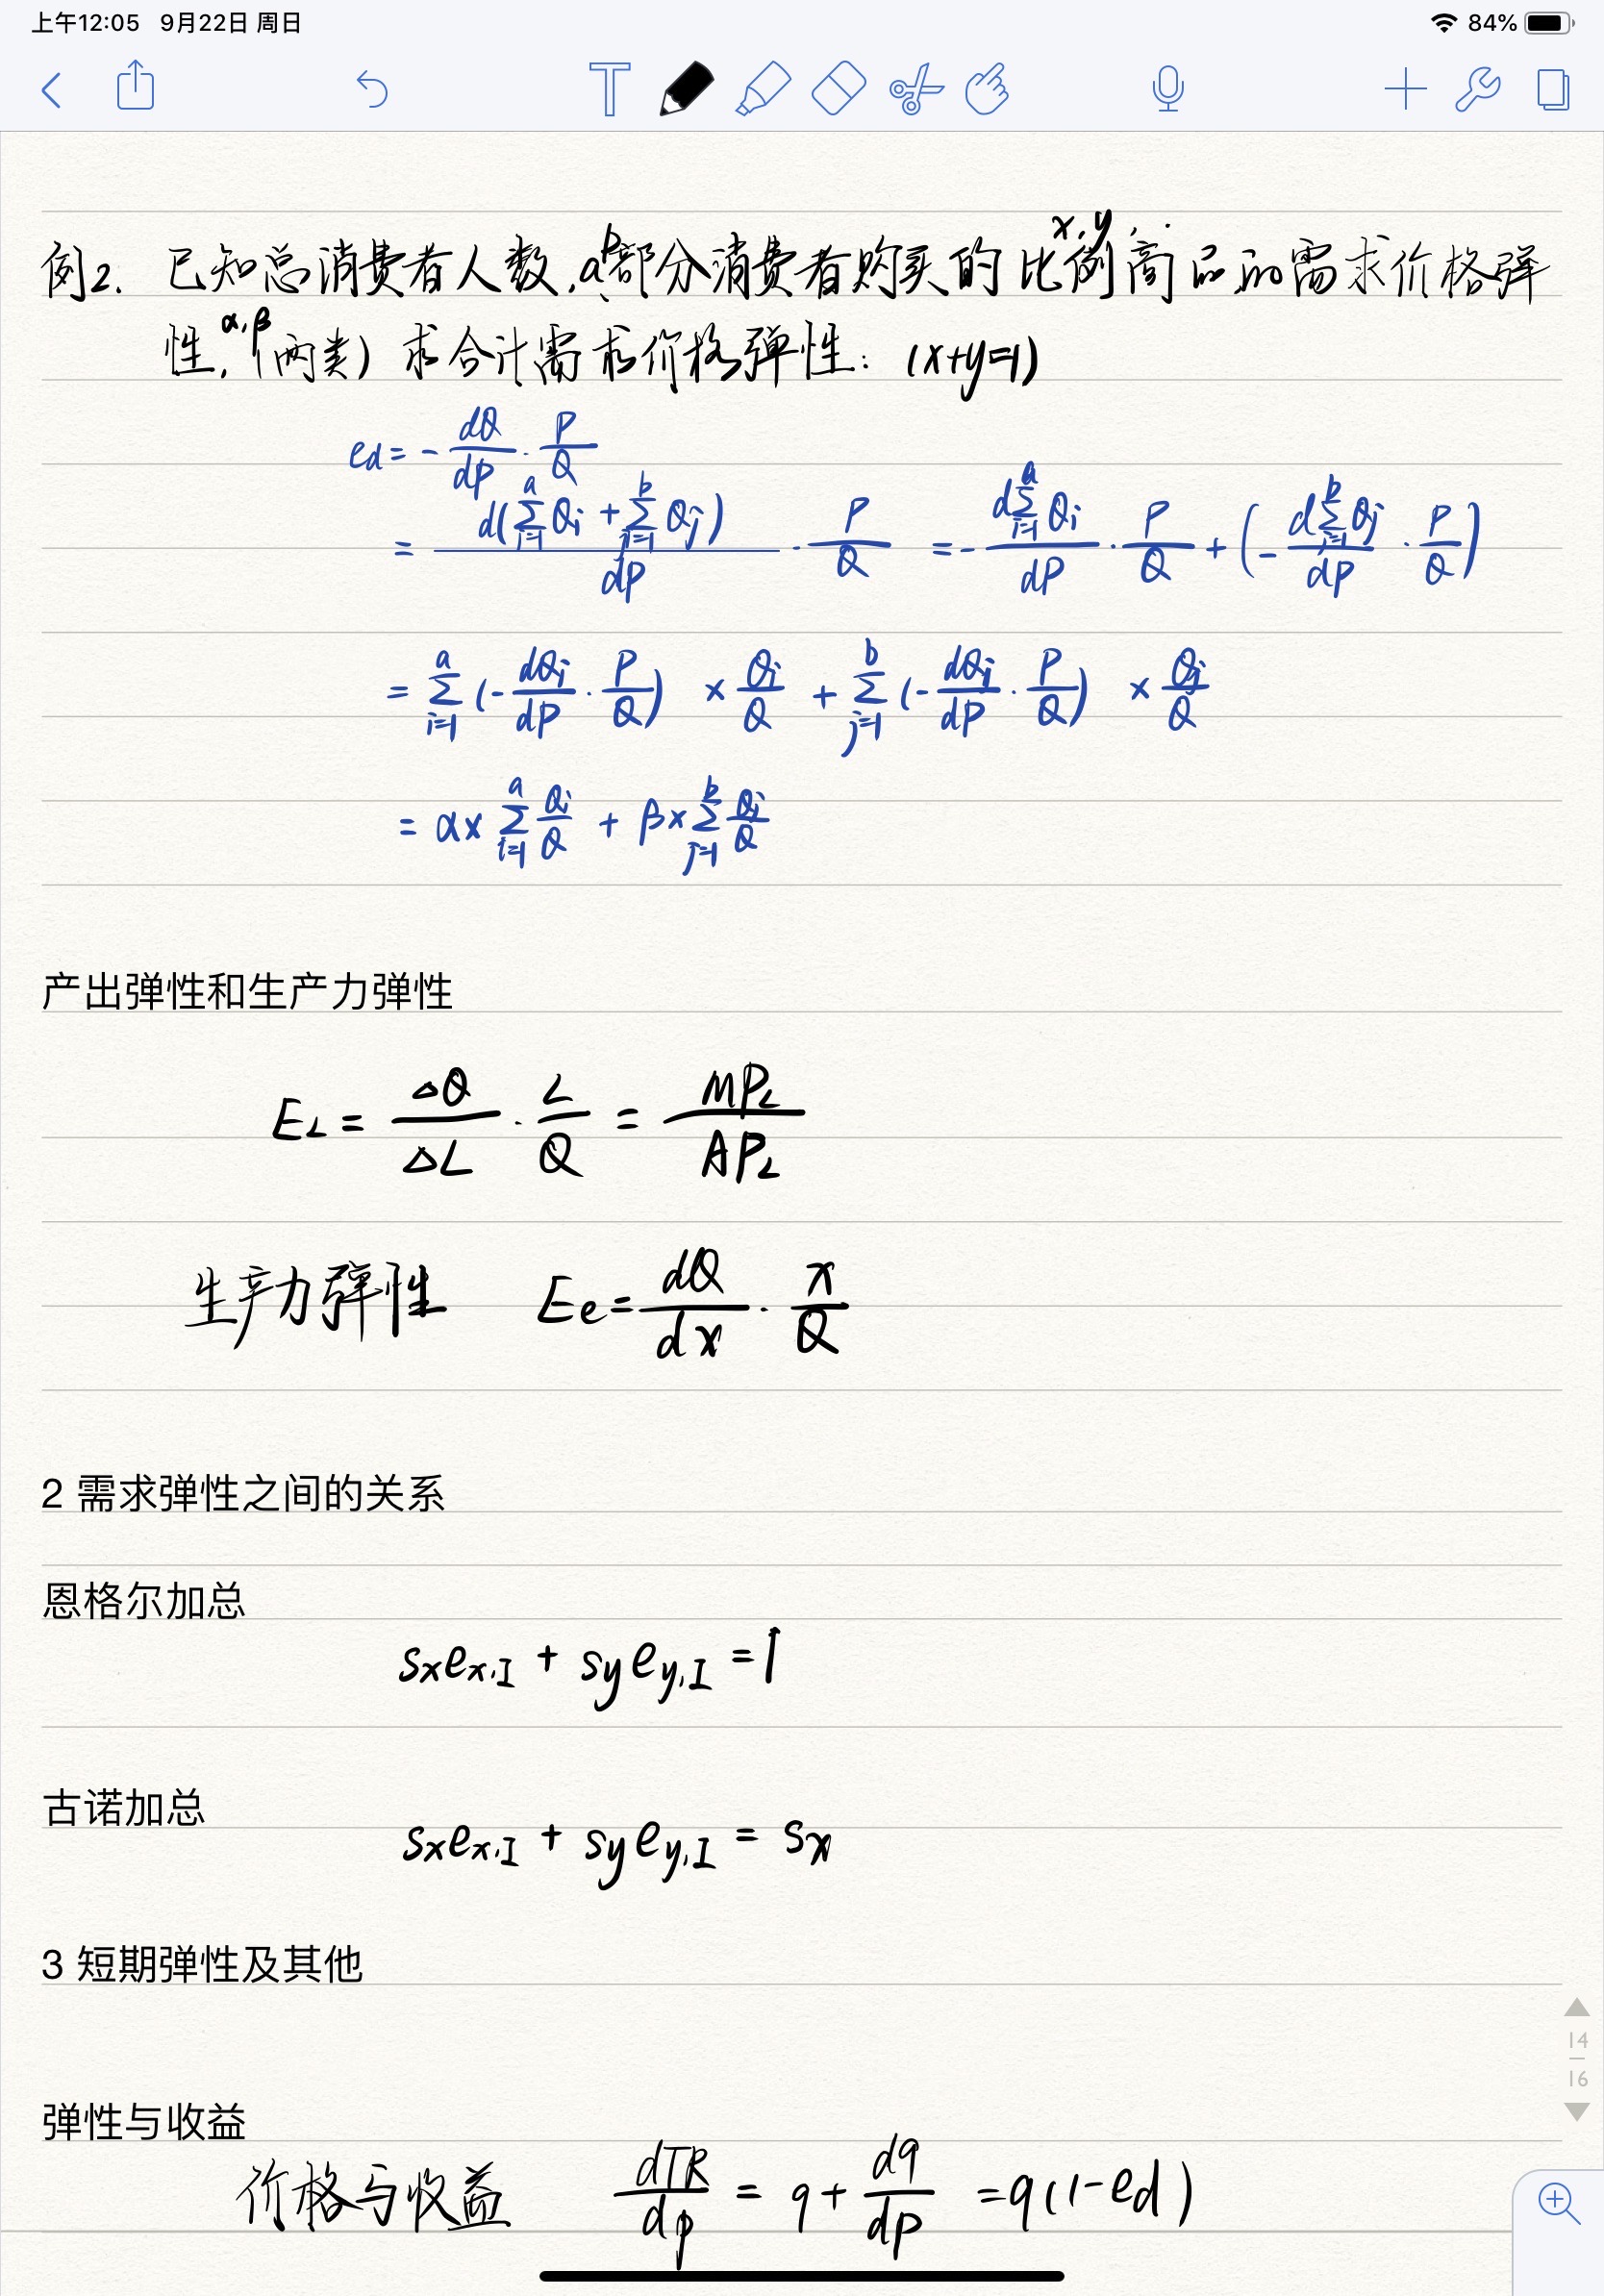 上午12:05 9月22日 周日 84%
例2. 已知总消费者人数,a,b部分消费者购买的比例x,y,商品的需求价格弹
性α,β,(两类) 求合计需求价格弹性: (x+y=1)
ed = - dQ/dp · P/Q
= d(∑_{i=1}^{a} Qi + ∑_{j=1}^{b} Qj)/dp · P/Q = - d∑_{i=1}^{a} Qi/dP · P/Q + (- d∑_{j=1}^{b} Qj/dp · P/Q)
= ∑_{i=1}^{a} (- dQi/dp · P/Q) × Qi/Q + ∑_{j=1}^{b} (- dQj/dp · P/Q) × Qj/Q
= α× ∑_{i=1}^{a} Qi/Q + β× ∑_{j=1}^{b} Qj/Q
产出弹性和生产力弹性
EL = △Q/△L · L/Q = MPL/APL
生产力弹性 Ee = dQ/dx · x/Q
2 需求弹性之间的关系
恩格尔加总
sxex,I + syey,I = 1
古诺加总
sxex,I + syey,I = sx
3 短期弹性及其他
14
16
弹性与收益
价格与收益 dTR/dp = q + dq/dp = q(1-ed)